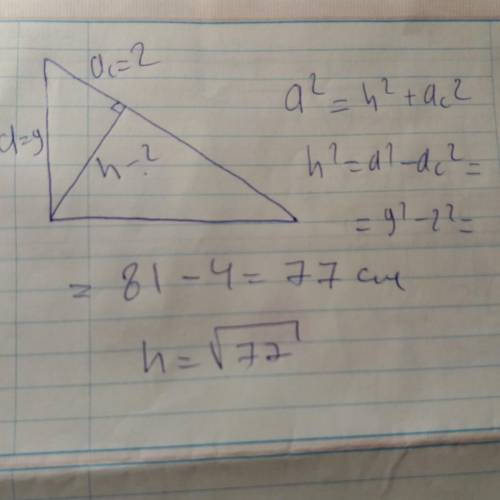 a_c=2
a=9
h-?
a²=h²+a_c²
h²=a²-a_c²=
=9²-2²=
=81-4=77 см
h=√77